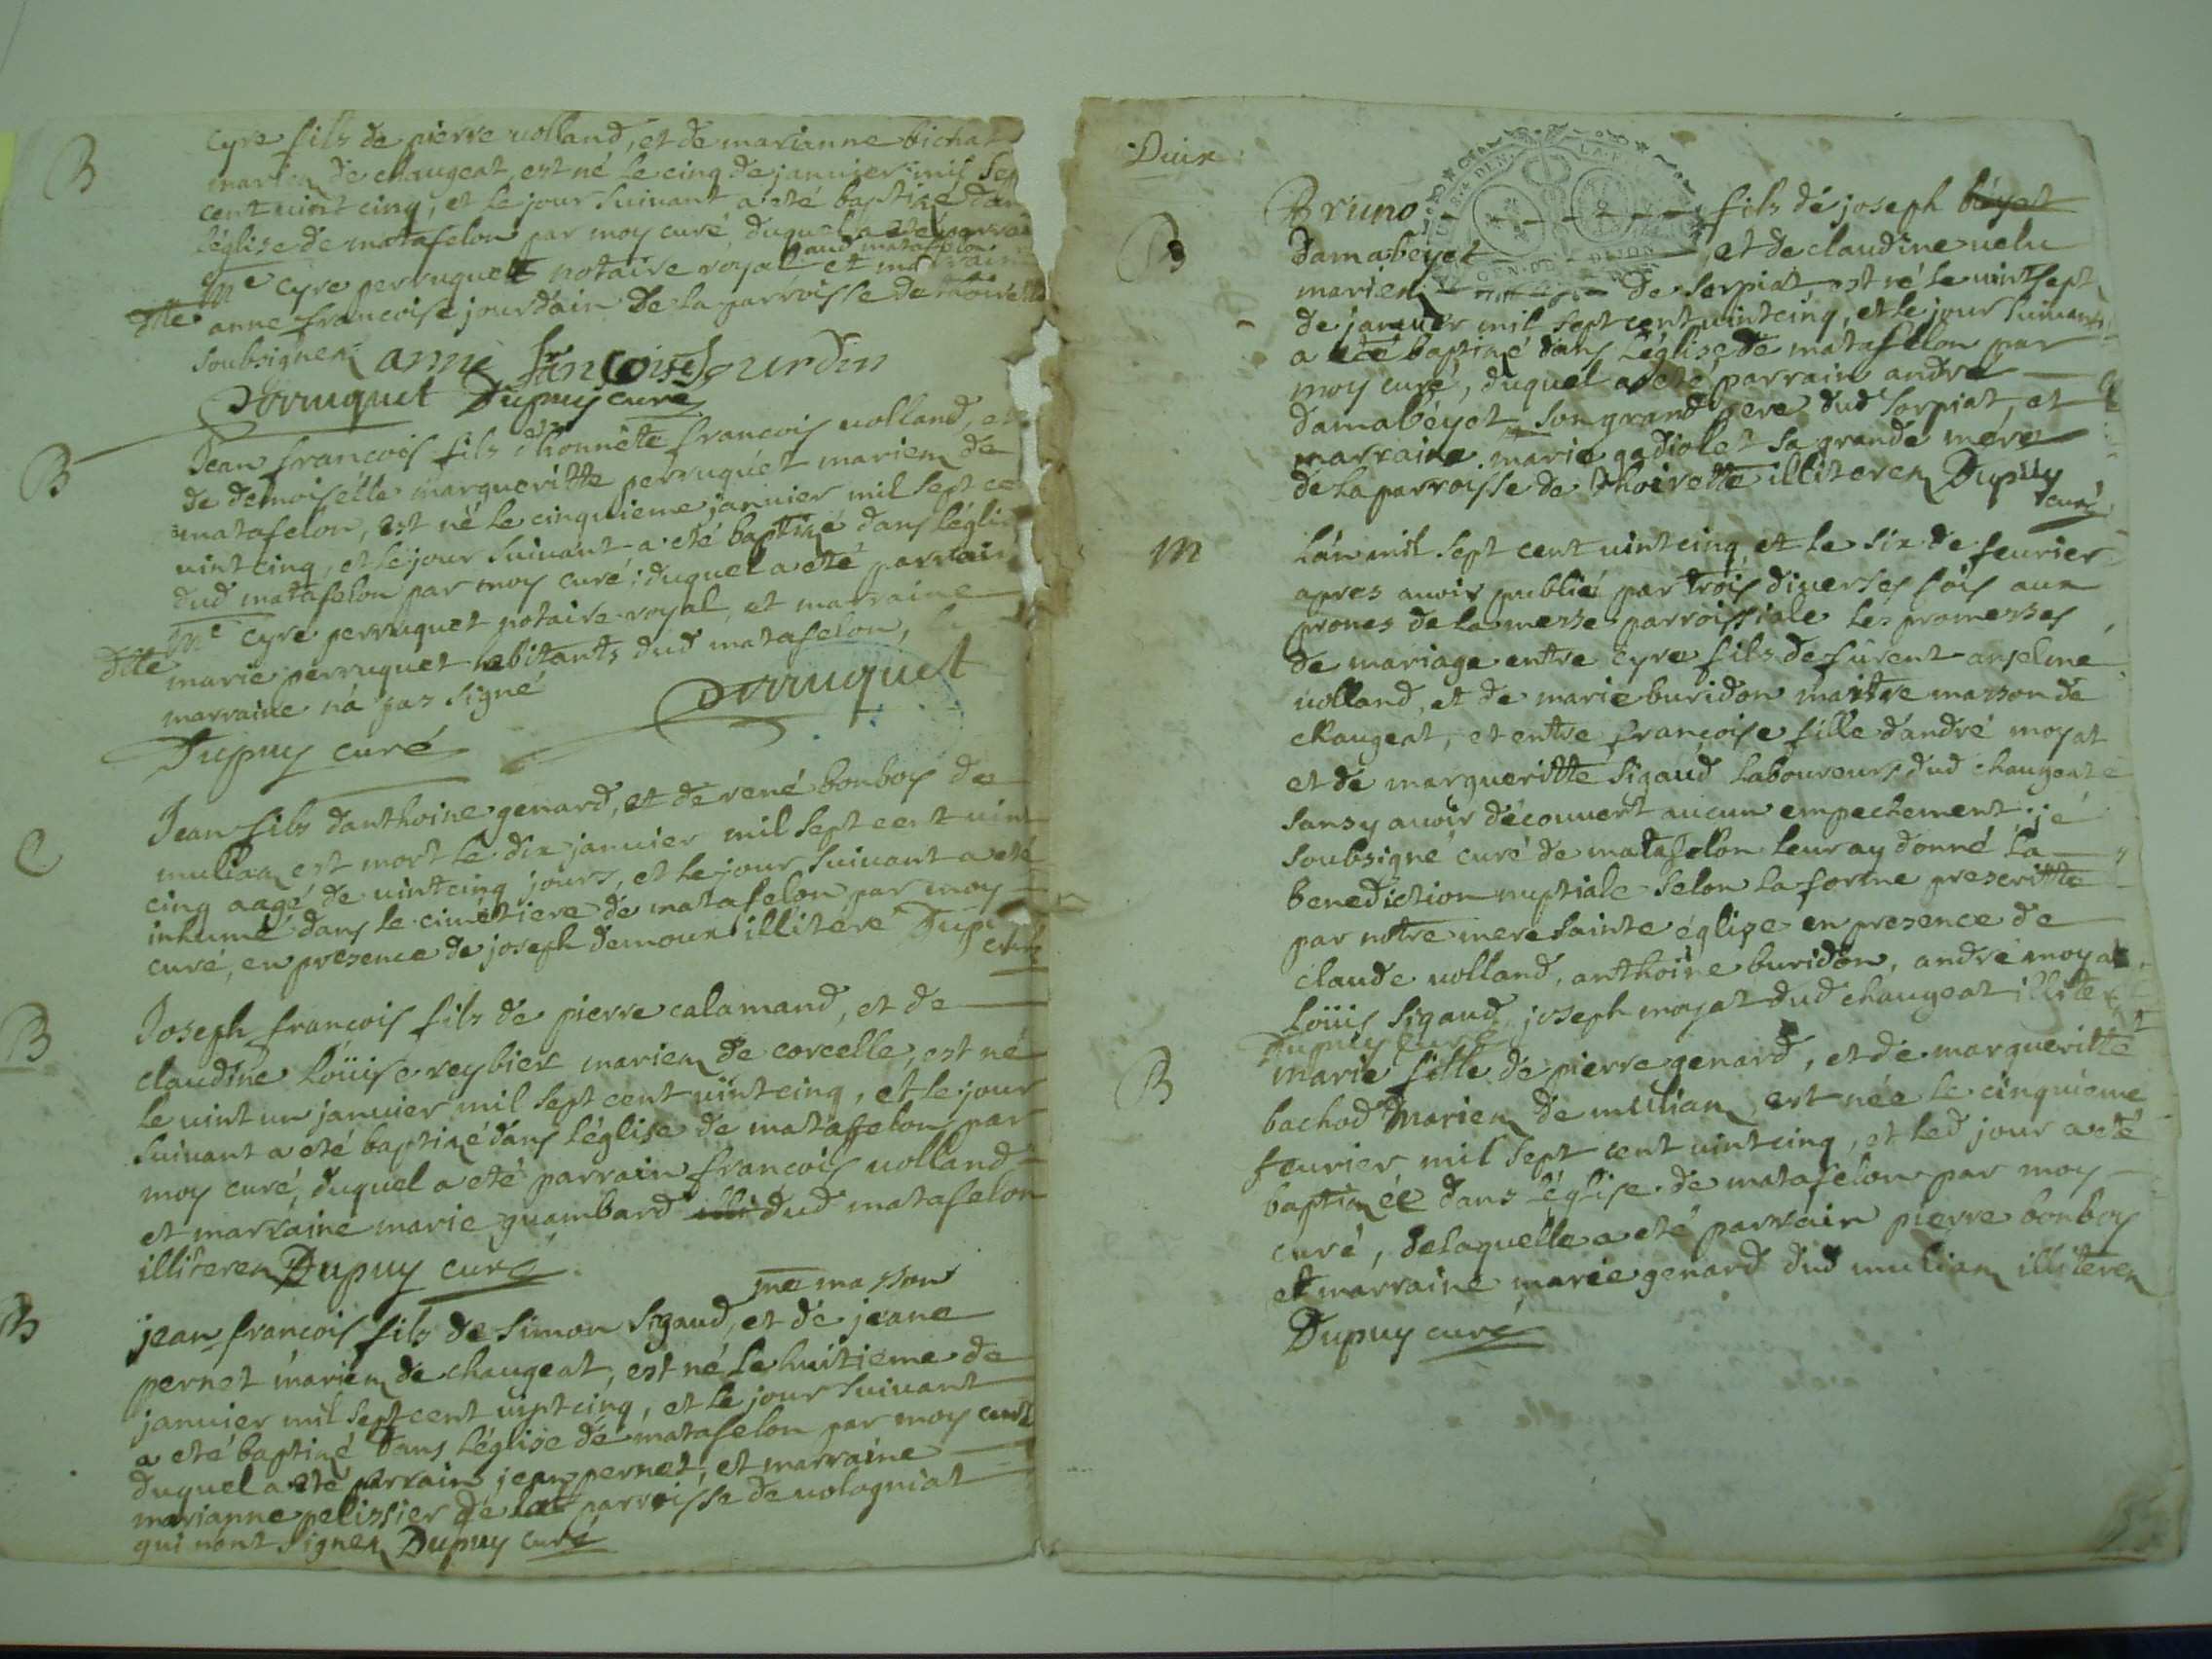 B
cyre fils de pierre volland, et de marianne bichat
mariez de chaugeat, est né le cinq de janvier mil sep
cent vint cinq, et le jour suivant a eté baptizé dan
l'église de matafelon par moy curé duquel a eté parrai
aud matafelon
Me cyre perruquet notaire royal et marraine
dlle anne francoise jourdain de la parroisse de thoirette
soubsignez anne francoise Jourdin
Perruquet Dupuy curé
B
Jean francois fils d'honnête francois volland, et
de demoiselle margueritte perruquet mariez de
matafelon, est né le cinquieme janvier mil sept ce
vint cinq, et le jour suivant a eté baptizé dans l'égli
dud matafelon par moy curé; duquel a eté parrain
Me cyre perruquet notaire royal, et marraine
dlle marie perruquet habitants dud matafelon, la
marraine n'a pas signé Perruquet
Dupuy curé
C
Jean fils d'anthoine genard, et de rené bonboy de
muliaz est mort le dix janvier mil sept cent vint
cinq aagé de vint cinq jours, et le jour suivant a eté
inhumé dans le cimetiere de matafelon par moy
curé, en presence de joseph demoux illiteré Dupuy
curé
B
Joseph françois fils de pierre calamand, et de
claudine loüise reybier mariez de corcelle, est né
le vint un janvier mil sept cent vint cinq, et le jour
suivant a eté baptizé dans l'église de matafelon par
moy curé, duquel a eté parrain francois volland
et marraine marie guambard illi dud matafelon
illiterez Dupuy curé
me masson
B
jean francois fils de simon sigaud, et de jeane
pernet mariez de chaugeat, est né le huitieme de
janvier mil sept cent vint cinq, et le jour suivant
a eté baptizé dans l'église de matafelon par moy curé
duquel a eté parrain jean pernet, et marraine
marianne pelissier de la parroisse de volagniat
qui n'ont signez Dupuy curé
Deux
GEN. DE DIJON
B
Bruno fils de joseph béyet
damabeyet et de claudine velu
mariez de sorpiat est né le vint sept
de janvier mil sept cent vint cinq, et le jour suivant
a eté baptizé dans l'église de matafelon par
moy curé, duquel a eté parrain andré
damabéyet son grand pere dud sorpiat, et
marraine marie gadiolet sa grande mére
de la parroisse de thoirette illiterez Dupuy
curé
M
L'an mil sept cent vint cinq et le six de fevrier
apres avoir publié par trois diverses fois aux
prones de la messe parroissiale les promesses
de mariage entre cyre fils de fûrent anselme
volland, et de marie buridon maitre masson de
chaugeat, et entre françoise fille d'andré moyat
et de margueritte sigaud laboureurs dud chaugeat
sans y avoir découvert aucun empechement. je
soubsigné curé de matafelon leur ay donné la
benediction nuptiale selon la forme prescritte
par notre mere sainte église en presence de
claude volland, anthoine buridon, andré moyat
loüis sigaud joseph moyat dud chaugeat illiterez
Dupuy curé
B
marie fille de pierre genard, et de margueritte
bachod mariez de muliaz est née le cinquieme
fevrier mil sept cent vint cinq, et led jour a eté
baptizée dans l'église de matafelon par moy
curé, de laquelle a eté parrain pierre bonboy
et marraine marie genard dud muliaz illiterez
Dupuy curé